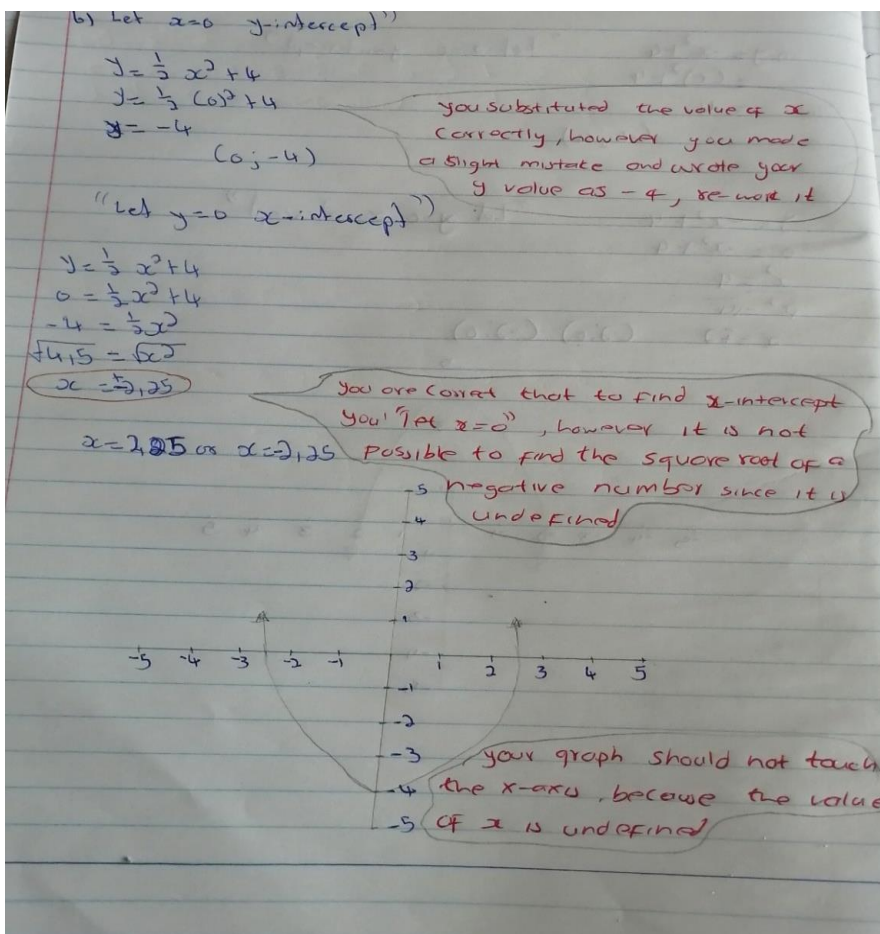 b) Let x=0 y-intercept"
y = 1/2 x² + 4
y = 1/2 (0)² + 4
y = -4
(0; -4)
you substituted the value of x
correctly, however you made
a slight mistake and wrote your
y value as -4, re-work it
"Let y=0 x-intercept"
y = 1/2 x² + 4
0 = 1/2 x² + 4
-4 = 1/2 x²
√4,5 = √x²
x = ±2,25
x = 2,25 or x = -2,25
you are correct that to find x-intercept
you "let x=0", however it is not
possible to find the square root of a
negative number since it is
undefined
5
4
3
2
1
-5 -4 -3 -2 -1 1 2 3 4 5
-1
-2
-3
-4
-5
your graph should not touch
the x-axis, because the value
of x is undefined